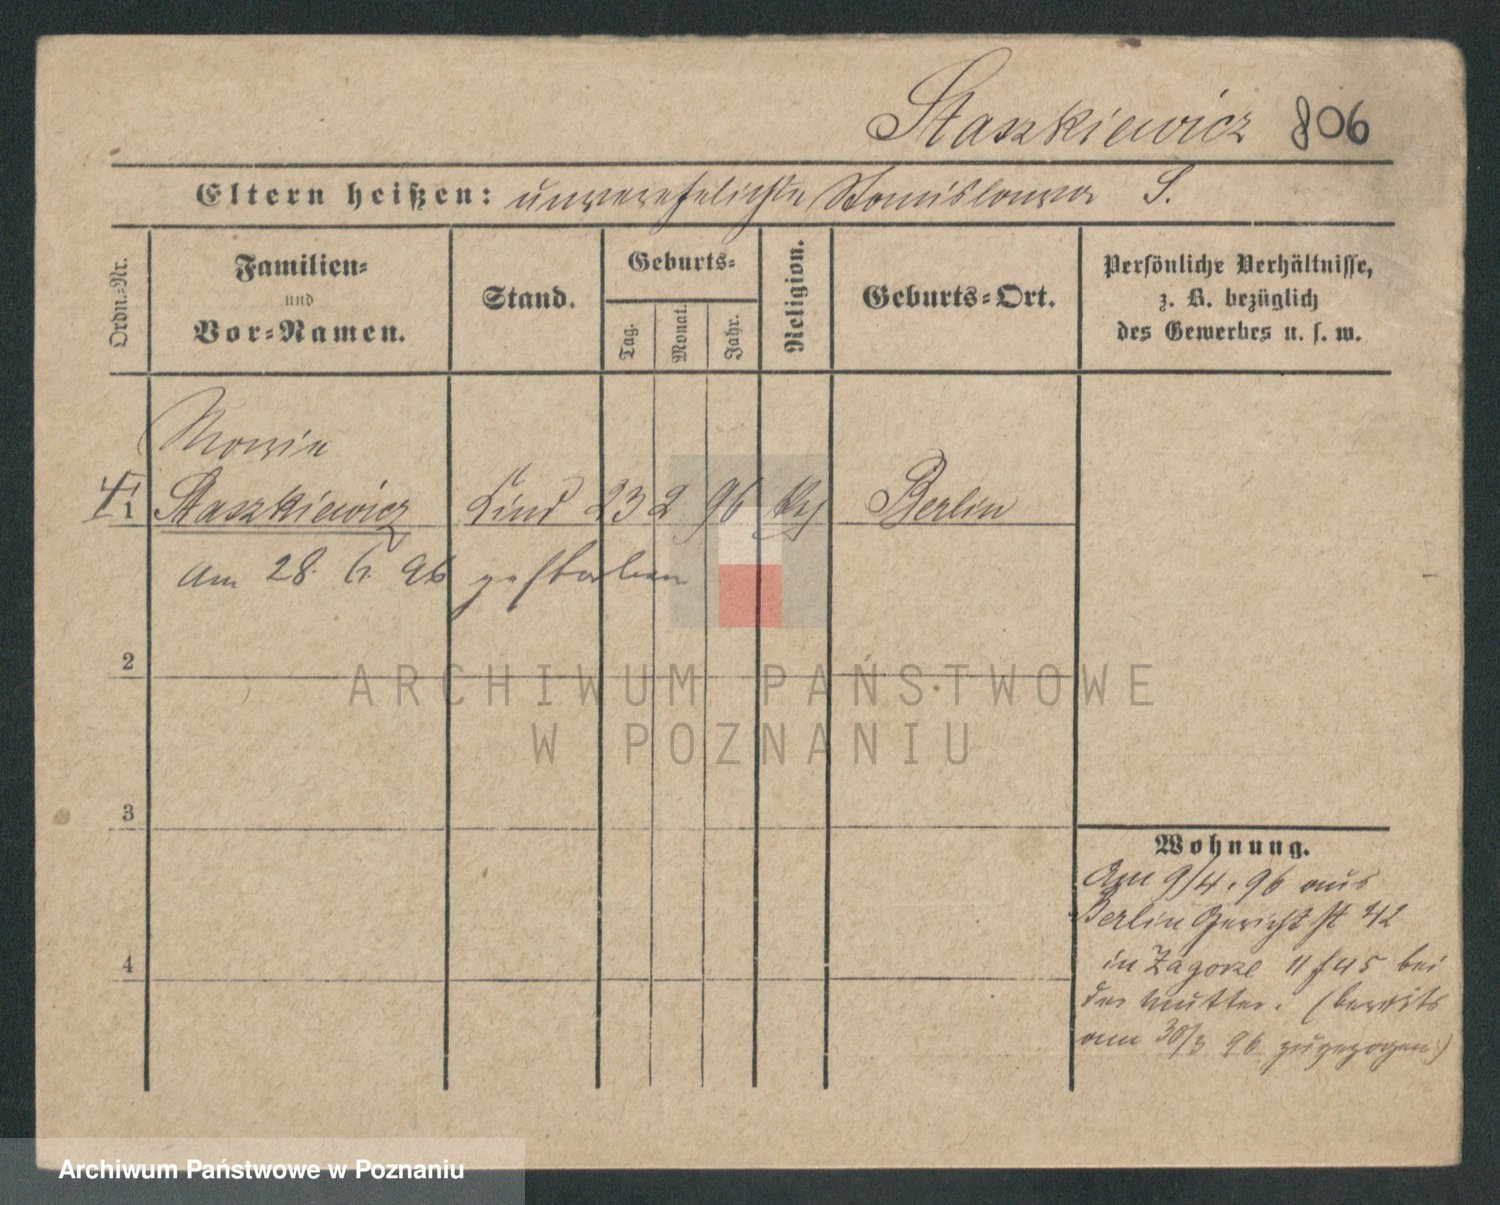 Staszkiewicz 806
Eltern heißen: unverehelichte Stanislawa S.
Ordn.-Nr.
Familien-
und
Vor-Namen.
Stand.
Geburts-
Tag.
Monat.
Jahr.
Religion.
Geburts-Ort.
Persönliche Verhältnisse,
z. B. bezüglich
des Gewerbes u. s. w.
Maria
1 Staszkiewicz Kind 23 2 96 Berlin
am 28. 6. 96 gestorben
2
ARCHIWUM PAŃSTWOWE
W POZNANIU
3
Wohnung.
Am 9/4. 96 aus
Berlin Gericht st 42
4
in Zagorze 11 f 45 bei
der Mutter. (bereits
am 30/3 96 zugezogen)
Archiwum Państwowe w Poznaniu